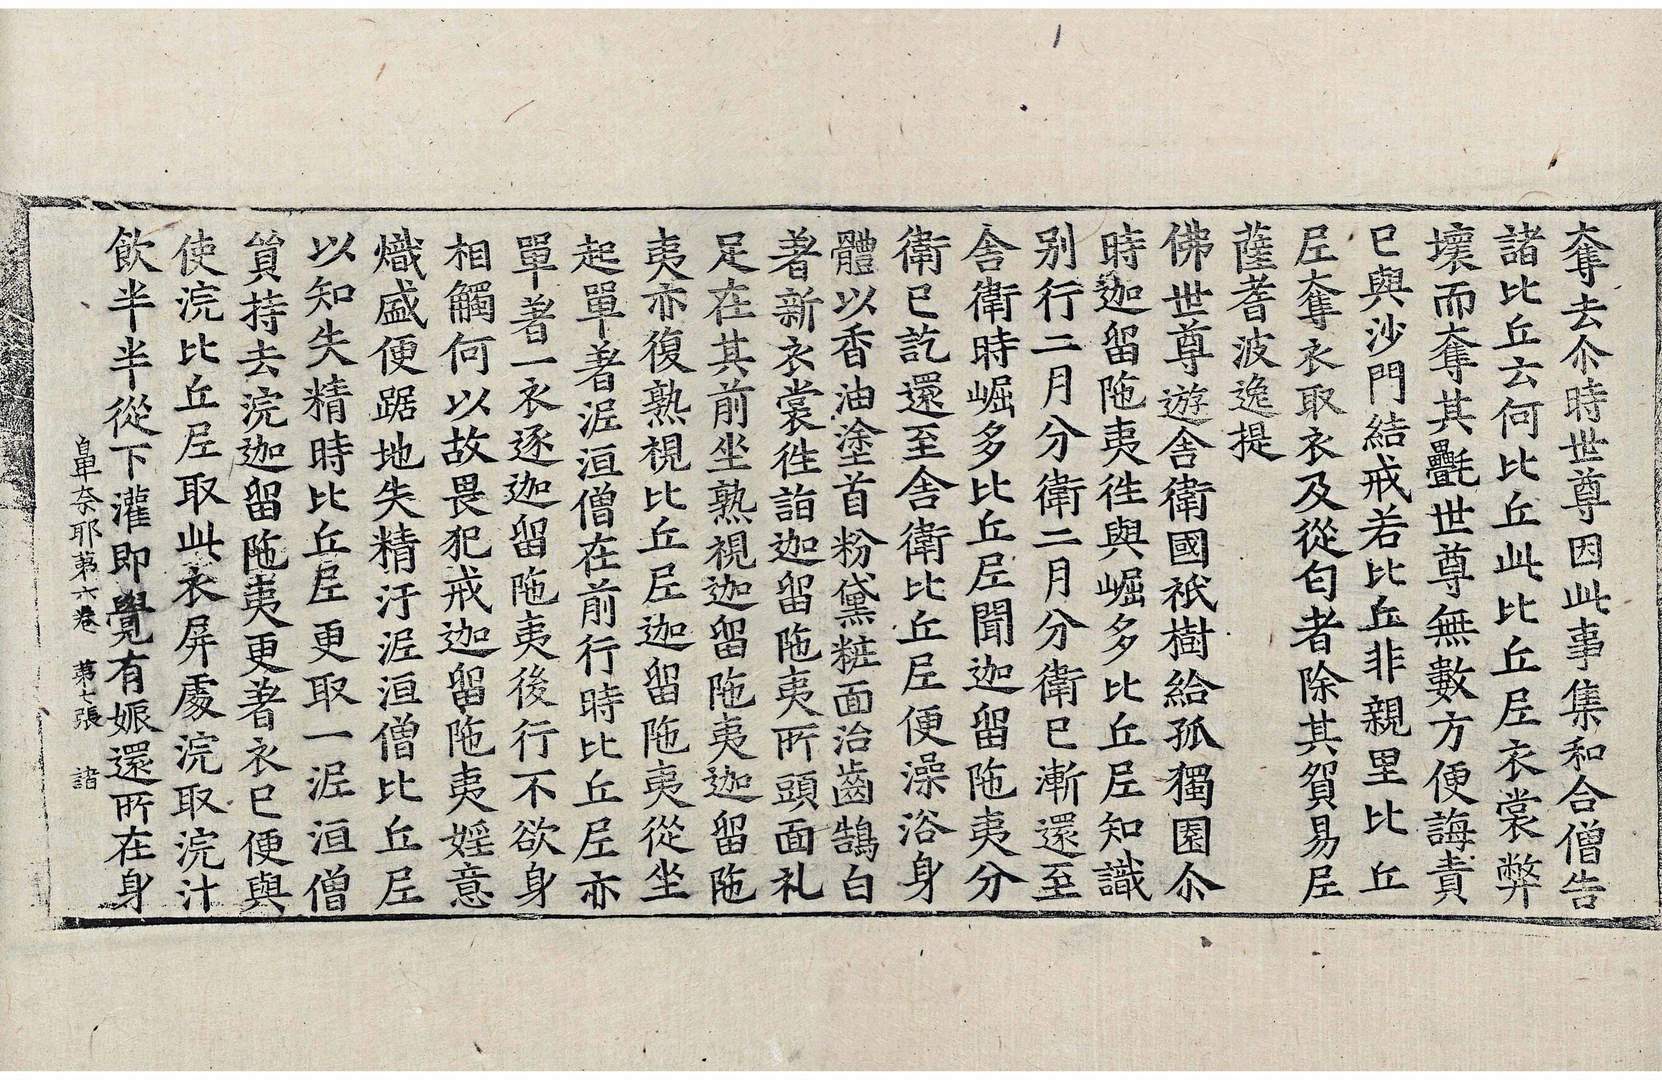 奪去尒時世尊因此事集和合僧告
諸比丘云何比丘此比丘𡰱衣裳弊
壞而奪其㲲世尊無數方便誨責
已與沙門結戒若比丘非親里比丘
𡰱奪衣取衣及從匃者除其貿易𡰱
薩耆波逸提
佛世尊遊舍衛國祇樹給孤獨園尒
時迦留陁夷徃與崛多比丘𡰱知識
别行二月分衛二月分衛已漸還至
舍衛時崛多比丘𡰱聞迦留陁夷分
衛已訖還至舍衛比丘𡰱便澡浴身
體以香油塗首粉黛粧面治齒鵠白
著新衣裳徃詣迦留陁夷所頭面礼
足在其前坐熟視迦留陁夷迦留陁
夷亦復熟視比丘𡰱迦留陁夷從坐
起單著泥洹僧在前行時比丘𡰱亦
單著一衣逐迦留陁夷後行不欲身
相觸何以故畏犯戒迦留陁夷婬意
熾盛便踞地失精汙泥洹僧比丘𡰱
以知失精時比丘𡰱更取一泥洹僧
貿持去浣迦留陁夷更著衣已便與
使浣比丘𡰱取此衣屏處浣取浣汁
飮半半從下灌即覺有娠還所在身
鼻奈耶第六卷 第七張 諸